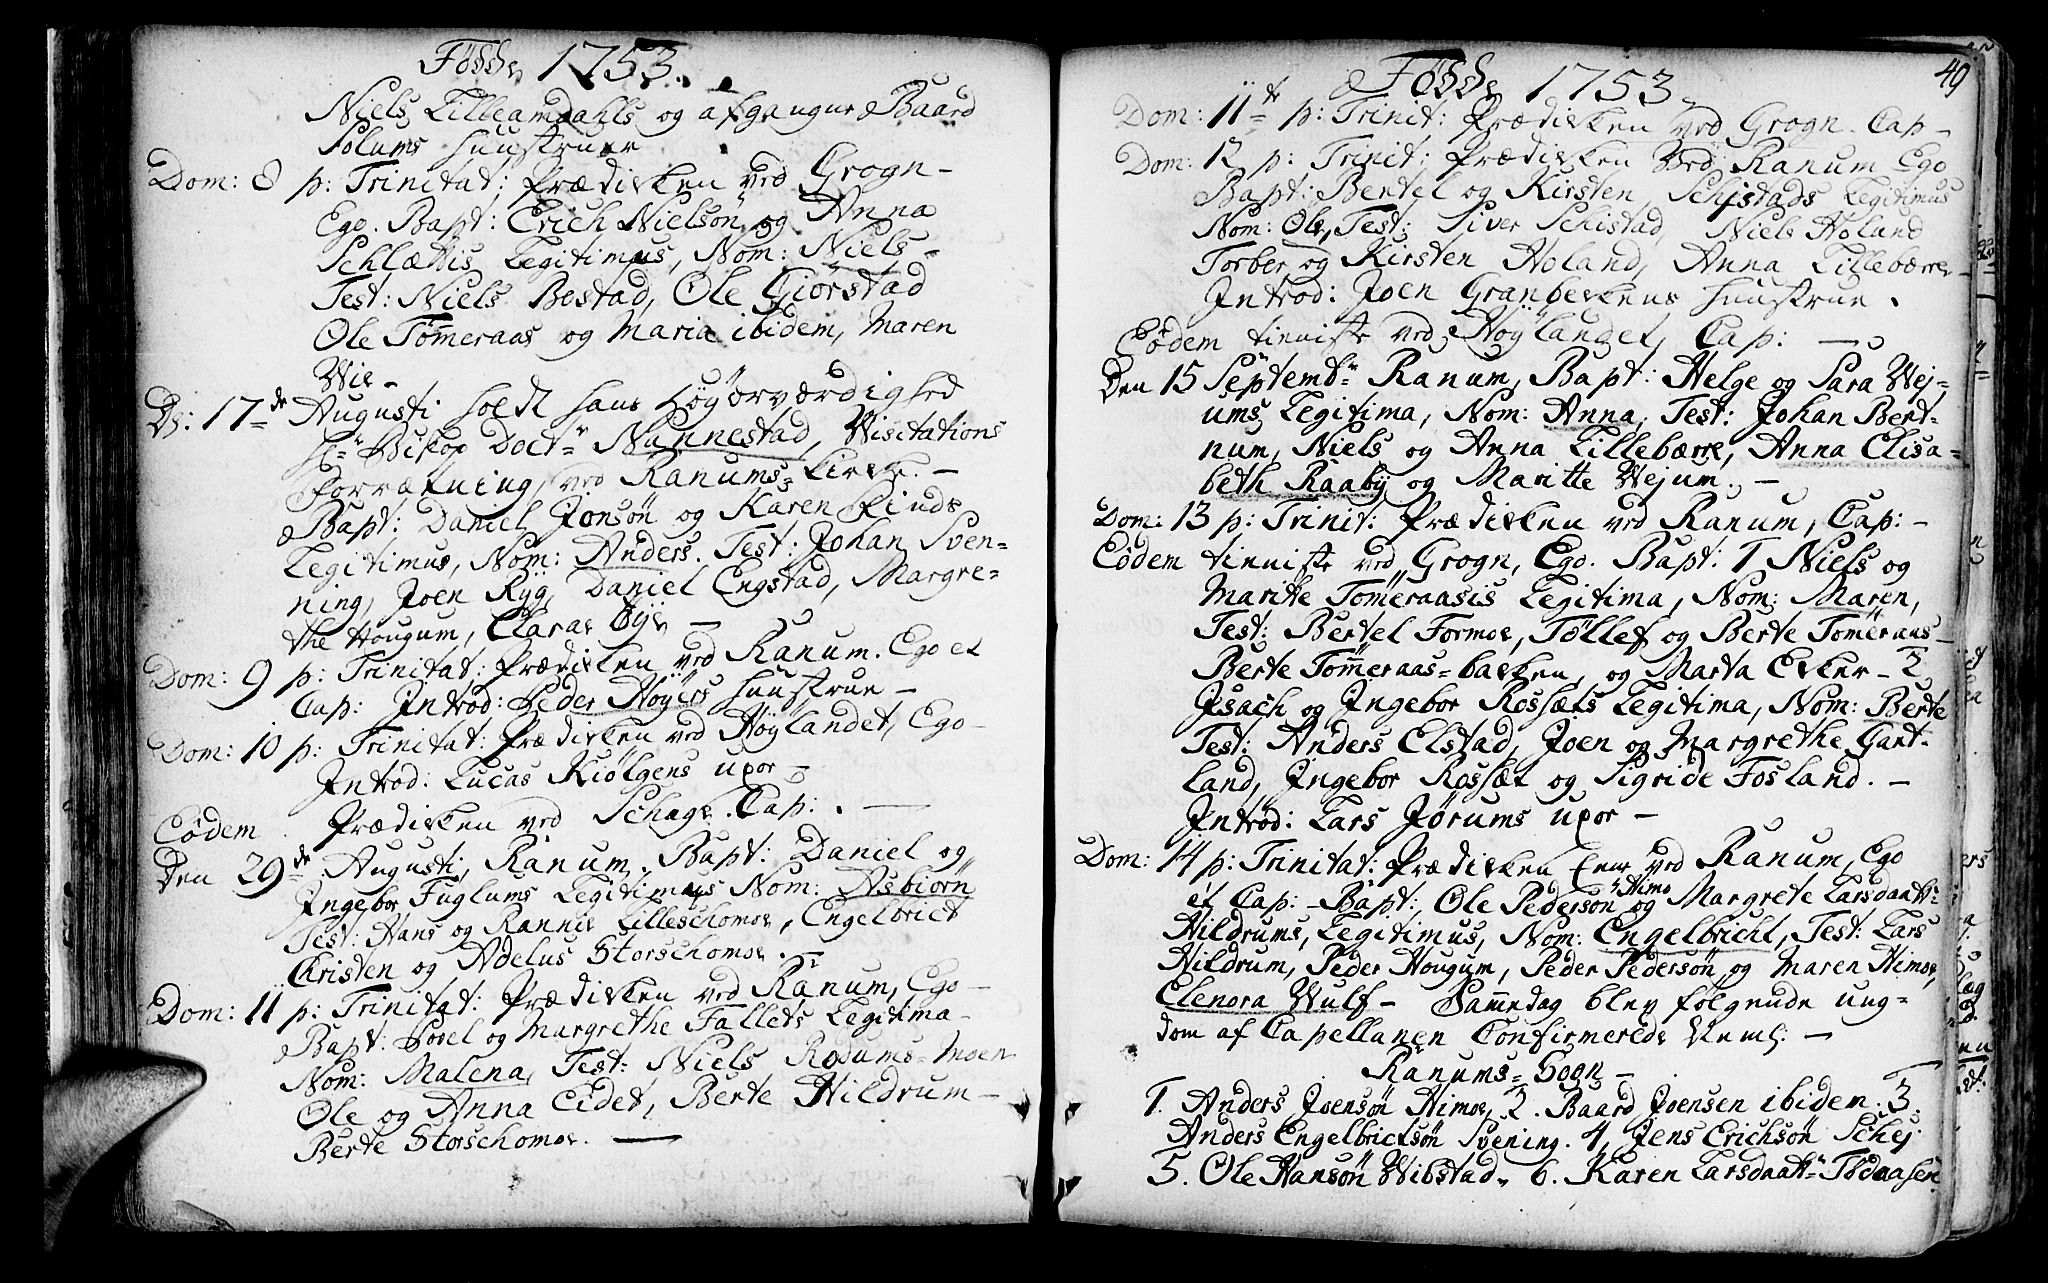 Födde 1753.
Niels Lilleamdahls og afgangne Baard
Solums Huustruer
Dom: 8 p: Trinitat: Prædicken ved Grogn-
Ego. Bapt: Erich Nielsön og Anna
Schlættis Legitimus, Nom: Niels-
Test: Niels Bestad, Ole Giörstad
Ole Tömeraas og Maria ibidem, Maren
Wie-
D: 17de Augusti holdt hans Höÿærværdighed
Hr Biskop Doct: Nannestad, Visitations
Forrætning, ved Ranums Kircke. -
Bapt: Daniel Jonsön og Karen Finds
Legitimus, Nom: Anders. Test: Johan Sven=
ning, Joen Rÿg, Daniel Engstad, Margre=
the Hougum, Clarae Bÿe -
Dom: 9 p: Trinitat: Prædicken ved Ranum. Ego et
Cap: Introd: Peder Höÿers Huustrue -
Dom: 10 p: Trinitat: Prædicken ved Höÿlandet, Ego -
Introd: Lucas Kiölgens uxor -
Eödem Prædicken ved Schage. Cap: . -
Den 29de Augusti, Ranum. Bapt: Daniel og
Ingebor Fuglums Legitimus Nom: Asbiörn
Test: Hans og Rannie Lilleschomoe, Engelbrict
Christen og Adelus Storschomoe. -
Dom: 11 p: Trinitat: Prædicken ved Ranum, Ego -
Bapt: Povel og Margrethe Fallets Legitima -
Nom: Malena, Test: Niels Rodums=Moen
Ole og Anna Eidet, Berte Hildrum -
Berte Storschomoe. -
Födde 1753.
49
Dom: 11te p: Trinit: Prædicken ved Grogn. Cap -
Dom: 12 p: Trinit: Prædicken ved Ranum Ego
Bapt: Bertel og Kirsten Schistads Legitimus
Nom: Ole, Test: Siver Schistad, Niels Holand
Torber og Kirsten Holand, Anna Lillebærre -
Introd: Joen Granbeckens Huustrue.
Eödem tieniste ved Höÿlandet, Cap: -
Den 15 Septembr Ranum, Bapt: Helge og Sara Vej=
ums Legitima, Nom: Anna, Test: Johan Bert=
num, Niels og Anna Lillebærre, Anna Elisa=
beth Raabÿ og Maritte Vejum. -
Dom: 13 p: Trinit: Prædicken ved Ranum, Cap: -
Eödem tieniste ved Grogn, Ego. Bapt: 1 Niels og
Maritte Tömeraasis Legitima, Nom: Maren,
Test: Bertel Formoe, Töllef og Berte Tömeraas -
Berte Tömeraas=backen, og Marta Ecker - 2
Isach og Ingebor Rossæts Legitima, Nom: Berte
Test: Anders Elstad, Joen og Margrethe Gart=
land, Ingebor Rossæt og Sigride Fosland. -
Introd: Lars Jörums uxor -
Dom: 14 p: Trinitat: Prædicken ved Ranum, Ego
et Cap: - Bapt: Ole Pedersön Himo og Margrete Larsdaatt:
Hildrums, Legitimus, Nom: Engelbricht, Test: Lars
Hildrum, Peder Hougum, Peder Pedersön og Maren Himoe,
Elenora Wulf - Samedag blev fölgende ung=
dom af Capellanen Confirmerede Neml: -
Ranums=Sogn -
1. Anders Joensön Himoe, 2. Baard Joensen ibidem. 3.
Anders Engelbrictsön Svening. 4, Jens Erichsön Schej
5. Ole Hansön Wibstad. 6. Karen Larsdaatt= Tödaasen.